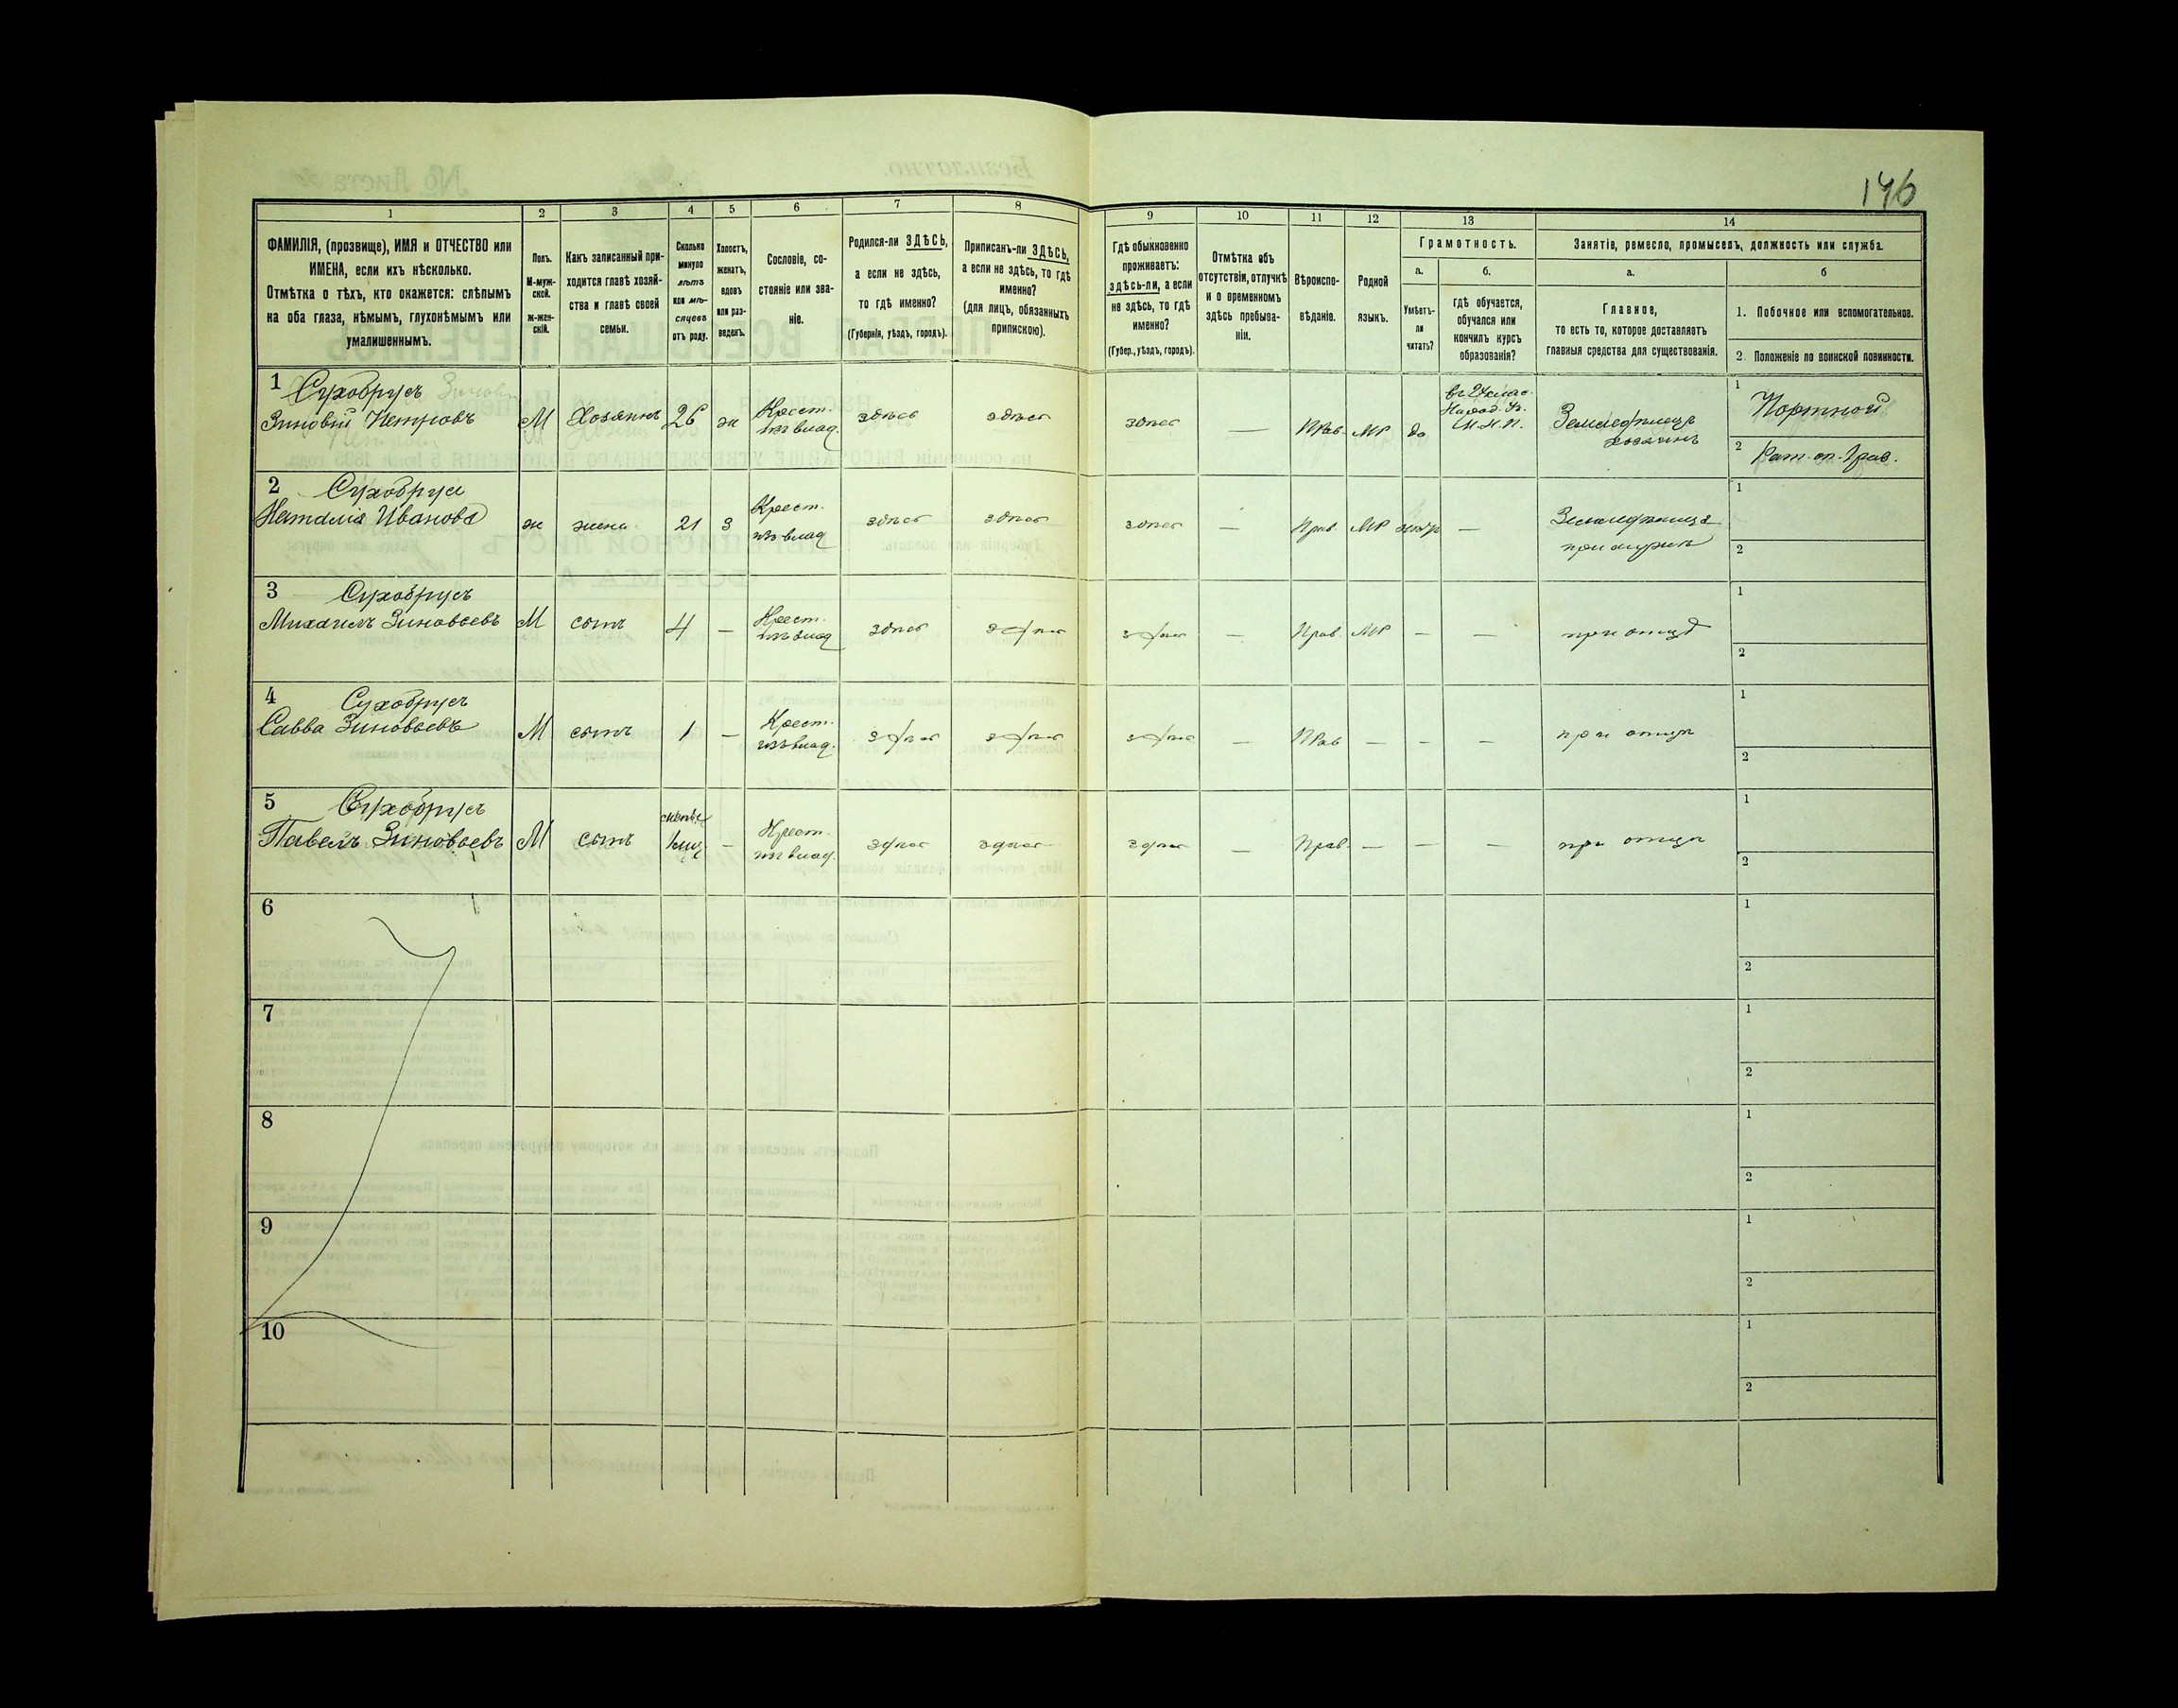 146
1 2 3 4 5 6 7 8 9 10 11 12 13 14
ФАМИЛІЯ, (прозвище), ИМЯ и ОТЧЕСТВО или
ИМЕНА, если ихъ нѣсколько.
Отмѣтка о тѣхъ, кто окажется: слѣпымъ
на оба глаза, нѣмымъ, глухонѣмымъ или
умалишеннымъ.
Полъ.
М-муж-
ской.
Ж-жен-
скій.
Какъ записанный при-
ходится главѣ хозяй-
ства и главѣ своей
семьи.
Сколько
минуло
лѣтъ
или мѣ-
сяцевъ
отъ роду.
Холостъ,
женатъ,
вдовъ
или раз-
веденъ.
Сословіе, со-
стояніе или зва-
ніе.
Родился-ли ЗДѢСЬ,
а если не здѣсь,
то гдѣ именно?
(Губернія, уѣздъ, городъ).
Приписанъ-ли ЗДѢСЬ,
а если не здѣсь, то гдѣ
именно?
(для лицъ, обязанныхъ
припискою).
Гдѣ обыкновенно
проживаетъ:
здѣсь-ли, а если
не здѣсь, то гдѣ
именно?
(Губер., уѣздъ, городъ).
Отмѣтка объ
отсутствіи, отлучкѣ
и о временномъ
здѣсь пребыва-
ніи.
Вѣроиспо-
вѣданіе.
Родной
языкъ.
Грамотность.
а.
Умѣетъ-
ли
читать?
б.
гдѣ обучается,
обучался или
кончилъ курсъ
образованія?
Занятіе, ремесло, промыселъ, должность или служба.
а.
Главное,
то есть то, которое доставляетъ
главныя средства для существованія.
б
1. Побочное или вспомогательное.
2. Положеніе по воинской повинности.
1 Сухобрусъ
Зиновій Петровъ
М
Хозяинъ
26
ж
Крест.
изъ влад.
здѣсь
здѣсь
здѣсь
—
Прав.
МР
да
Народ. Уч.
М.Н.П.
Земледѣлецъ
хозяинъ
1 Портной
2
2 Сухобрус
Наталія Иванова
ж
жена
21
З
Крест.
изъ влад
здѣсь
здѣсь
здѣсь
—
Прав.
МР
—
при мужѣ
1
2
3 Сухобрусъ
Михаилъ Зиновьевъ
М
сынъ
4
—
Крест.
изъ влад
здѣсь
здѣсь
здѣсь
—
Прав.
МР
—
—
при отцѣ
1
2
4 Сухобрусъ
Савва Зиновьевъ
М
сынъ
1
—
Крест.
изъ влад.
здѣсь
здѣсь
здѣсь
—
Прав
—
—
—
при отцѣ
1
2
5 Сухобрусъ
Павелъ Зиновьевъ
М
сынъ
—
Крест.
изъ влад.
здѣсь
здѣсь
здѣсь
—
Прав.
—
—
—
при отцѣ
1
2
6
1
2
7
1
2
8
1
2
9
1
2
10
1
2